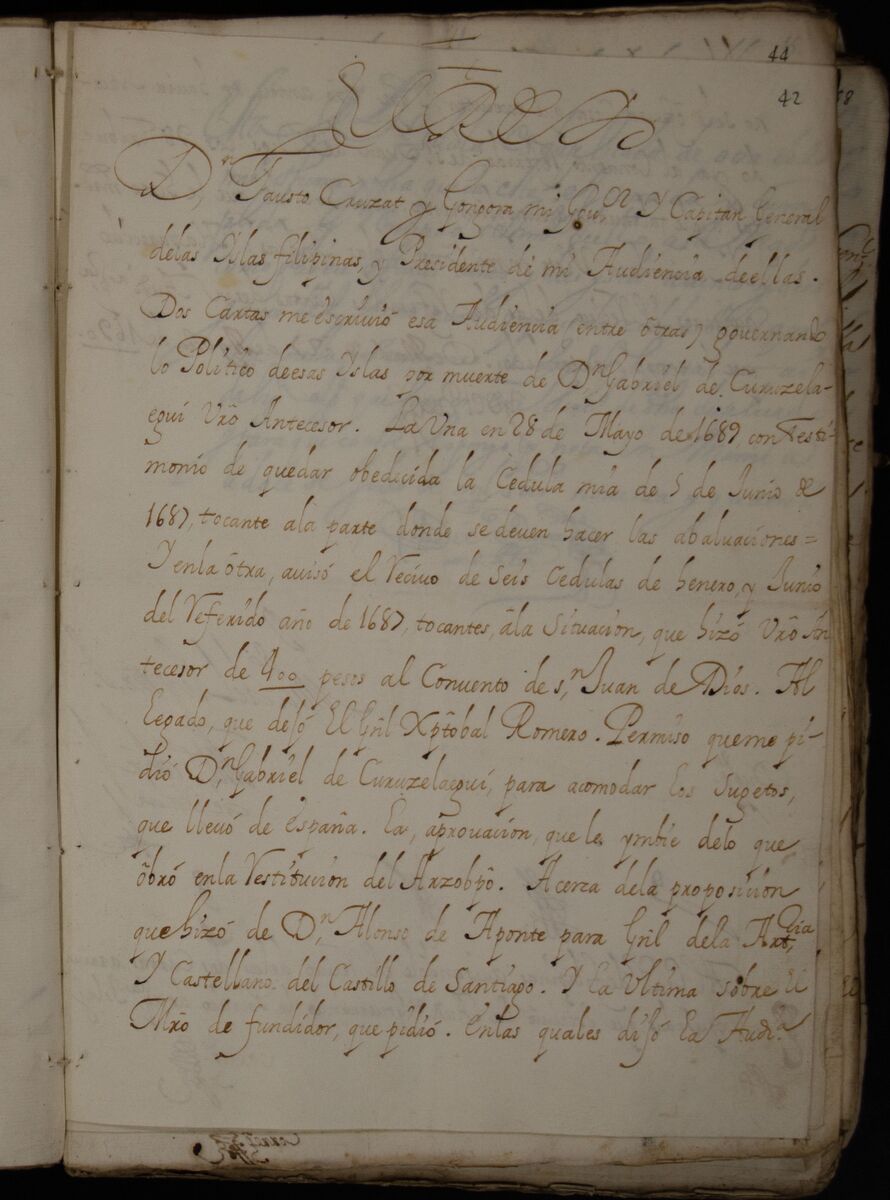 44
42
El Rey
Dn, Fausto Cruzat y Gongora mi Gouor Y Capitan General
delas Yslas filipinas, y Presidente de mi Audiencia deellas.
Dos Cartas me escriuió esa Audiencia (entre ôtras) gouernando
lo Politico deesas Yslas por muerte de Dn Gabriel de Curuzela-
egui Vrõ Antecesor. La Vna en 28 de Mayo de 1689 con Testi-
monio de quedar obedecida la Cedula mia de 5 de Junio de
1687, tocante ala parte donde se deuen hacer las abaluaciones=
Y enla ôtra, auisó el Reciuo de Seis Cedulas de henero, y Junio
del Referido año de 1687, tocantes, âla Situacion, que hizó Vrõ An
tecesor de 400 pesos al Conuento de s,n Juan de Dios. Al
Legado, que dejó El Grãl Xpõtobal Romero. Permiso queme pi-
dió Dn, Gabriel de Curuzelaegui, para acomodar los Sugetos,
que lleuó de españa. La, aprouacion, que le ymbie delo que
ôbró enla Restitucion del Arzobpõ. Acerca dela proposicion
que hizó de D,n Alonso de Aponte para Grãl dela Artria
Y Castellano del Castillo de Santiago. Y la Vltima sobre el
Mrõ de fundidor, que pidió. Enlas quales dijó la Audia